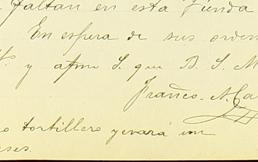 faltan en esta tienda
En espera de sus orden
y afmo S. que B. S. M.
Franco. N. Ca
tortillero yevará un
ses.